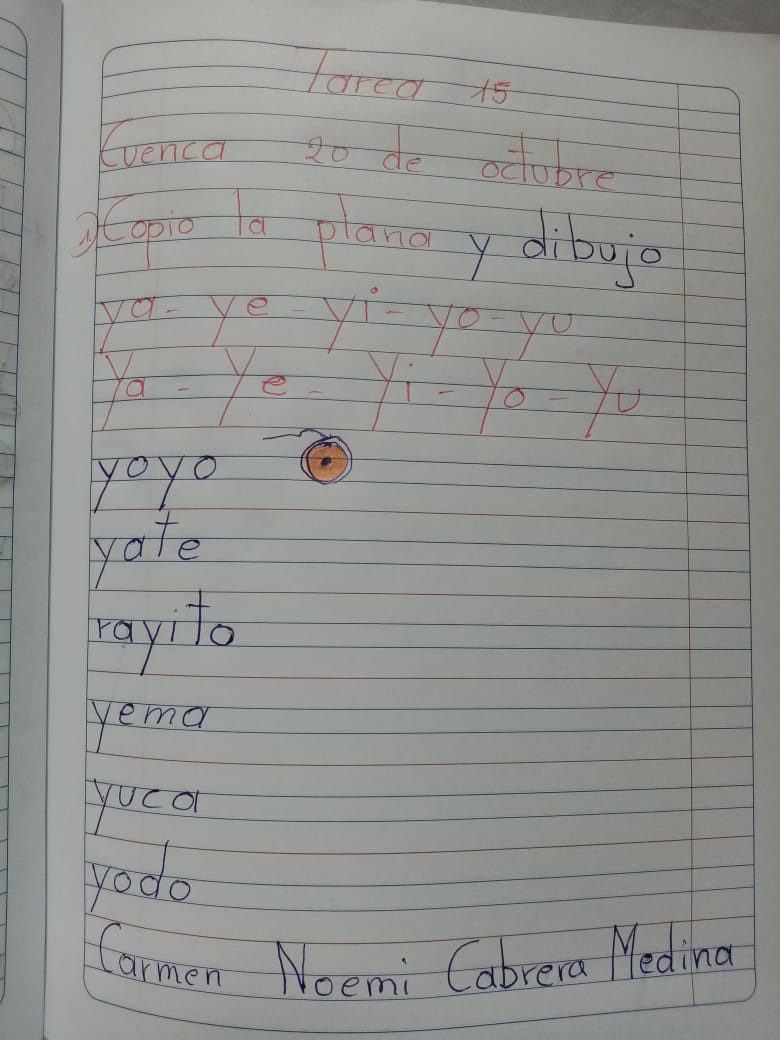 Tarea 15
Cuenca 20 de octubre
1) Copio la plana y dibujo
ya - ye - yi - yo - yu
Ya - Ye - Yi - Yo - Yu
yoyo
yate
rayito
yema
yuca
yodo
Carmen Noemi Cabrera Medina